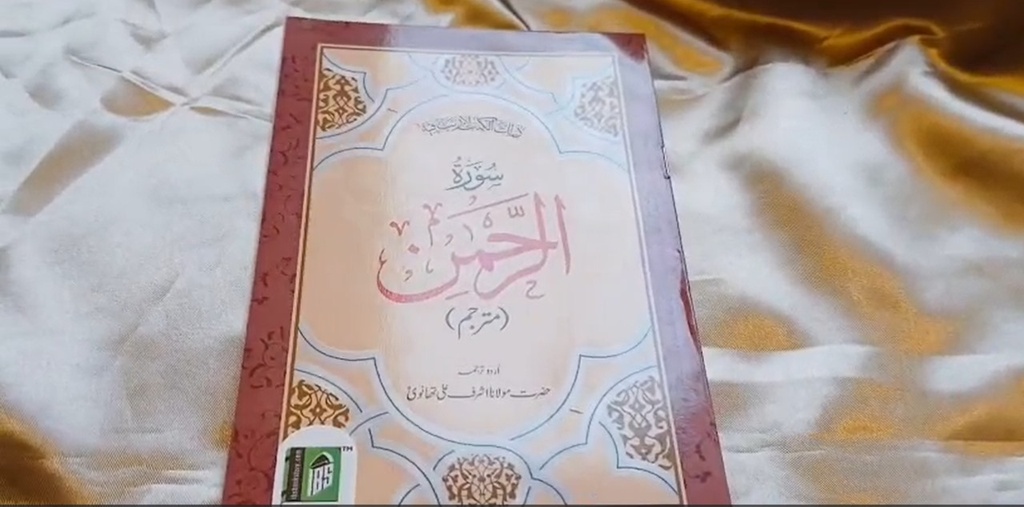 سُوْرَةُ
الرَّحْمٰنِ
(مترجم)
اردو ترجمہ
حضرت مولانا اشرف علی تھانویؒ
IBS
TM